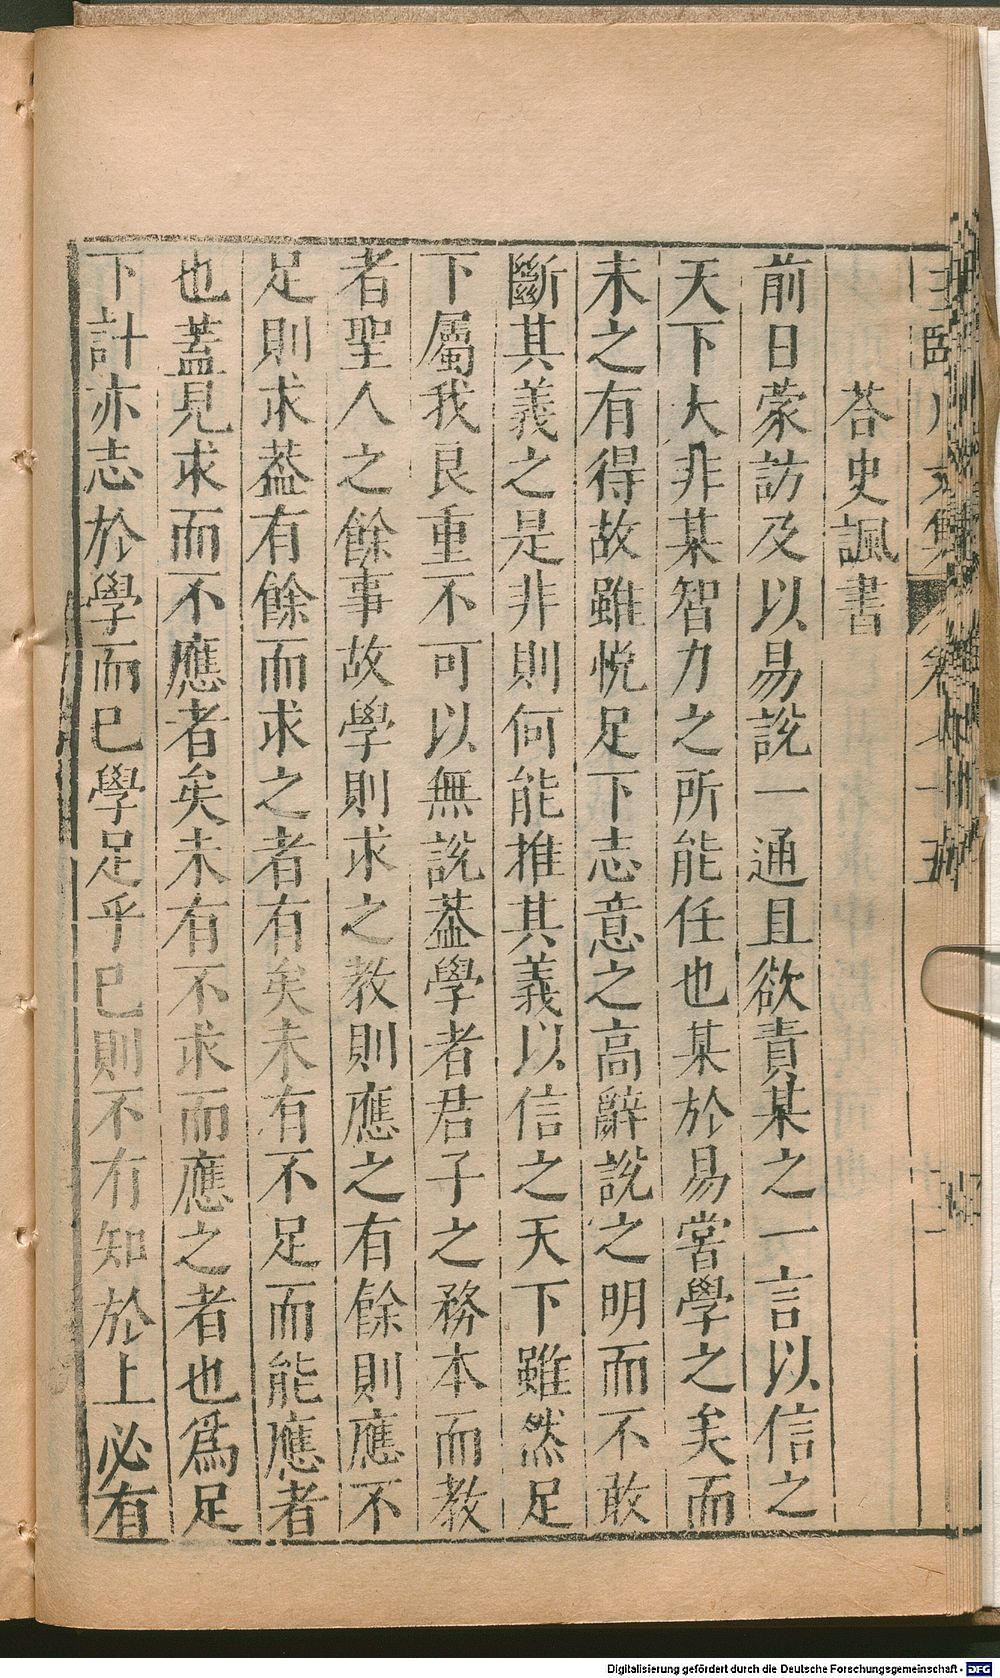 荅史諷書
前日蒙訪及以易說一通且欲責某之一言以信之
天下大非某智力之所能任也某於易嘗學之矣而
未之有得故雖悅足下志意之高辭說之明而不敢
斷其義之是非則何能推其義以信之天下雖然足
下屬我良重不可以無說葢學者君子之務本而教
者聖人之餘事故學則求之教則應之有餘則應不
足則求葢有餘而求之者有矣未有不足而能應者
也蓋見求而不應者矣未有不求而應之者也爲足
下計亦志於學而已學足乎已則不有知於上必有
Digitalisierung gefördert durch die Deutsche Forschungsgemeinschaft - DFG